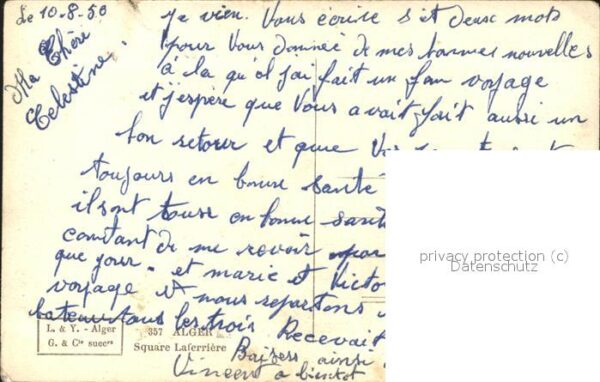 Le 10-8-50
Ma Chère
Celestine.
Je vien. Vous écrire s'it deuse mots
pour Vous donnée de mes bonnes nouvelles
à la qu'el j'ai fait un bon voyage
et j'espère que Vous avait fait aussi un
bon retour et que
toujours en bonne santé
ils ont tousse en bonne santé
constant de me revoir
que jour. et marie et Victo
voyage et nous repartons
bateau tous les trois Recevait
Baisers ainsi
Vincent a bientot
privacy protection (c)
Datenschutz
L. & Y. - Alger
G. & Cie succrs
357 ALGER
Square Laferrière